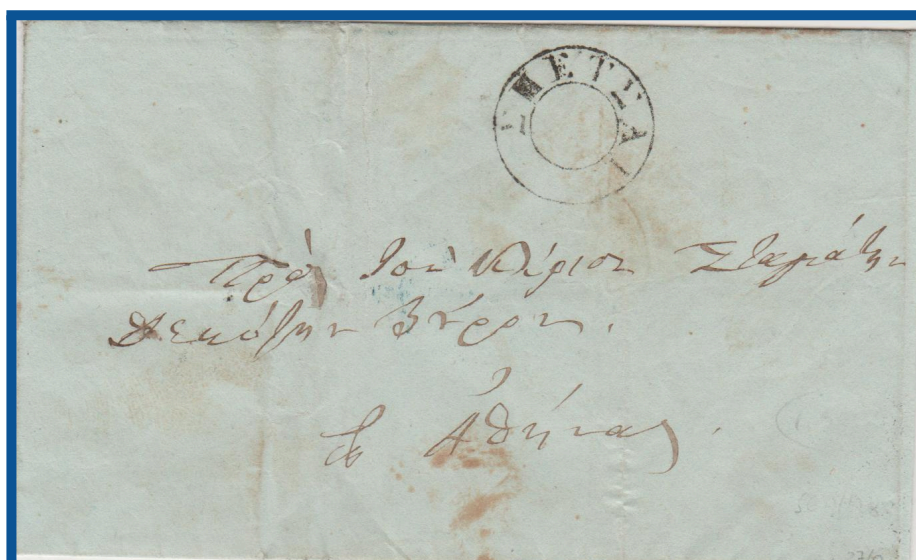 ΣΠΕΤΣΑΙ
Πρὸς τον Κύριον Σταμάτην
Δεκόζην Βούρον.
Εἰς Ἀθήνας.